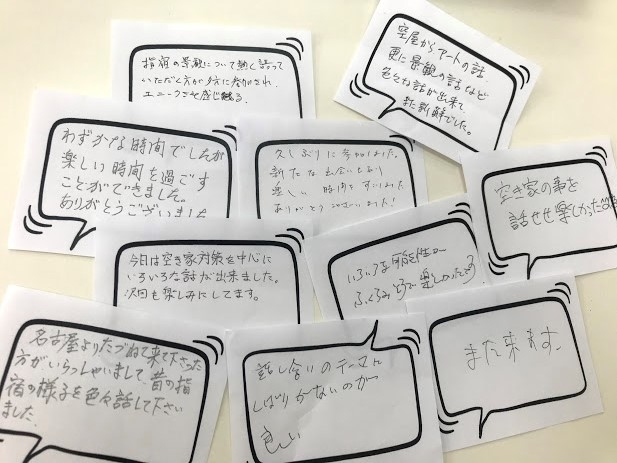 指宿の景観について熱く語って
いただく方が多方に参加され、
ユニークさを感じ
空屋からアートの話、
更に景観の話など
色々な話が出来て
また新鮮でした。
わずかな時間でしたが
楽しい時間を過ごす
ことができました。
ありがとうございました
久しぶりに参加しました。
新たな出会いもあり
楽しい 時間を すごしました
ありがとうございました!
空き家の事を
話せせ楽しかった
今日は空き家対策を中心に
いろいろな話が出来ました。
次回も楽しみにしてます。
いろいろな可能性が
ふくらみ
名古屋よりたづねて来て下さった
方がいらっしゃいまして、昔の指
宿の様子を色々話して下さい
ました。
話し合いのテーマに
しばりがないのが
また来ます。